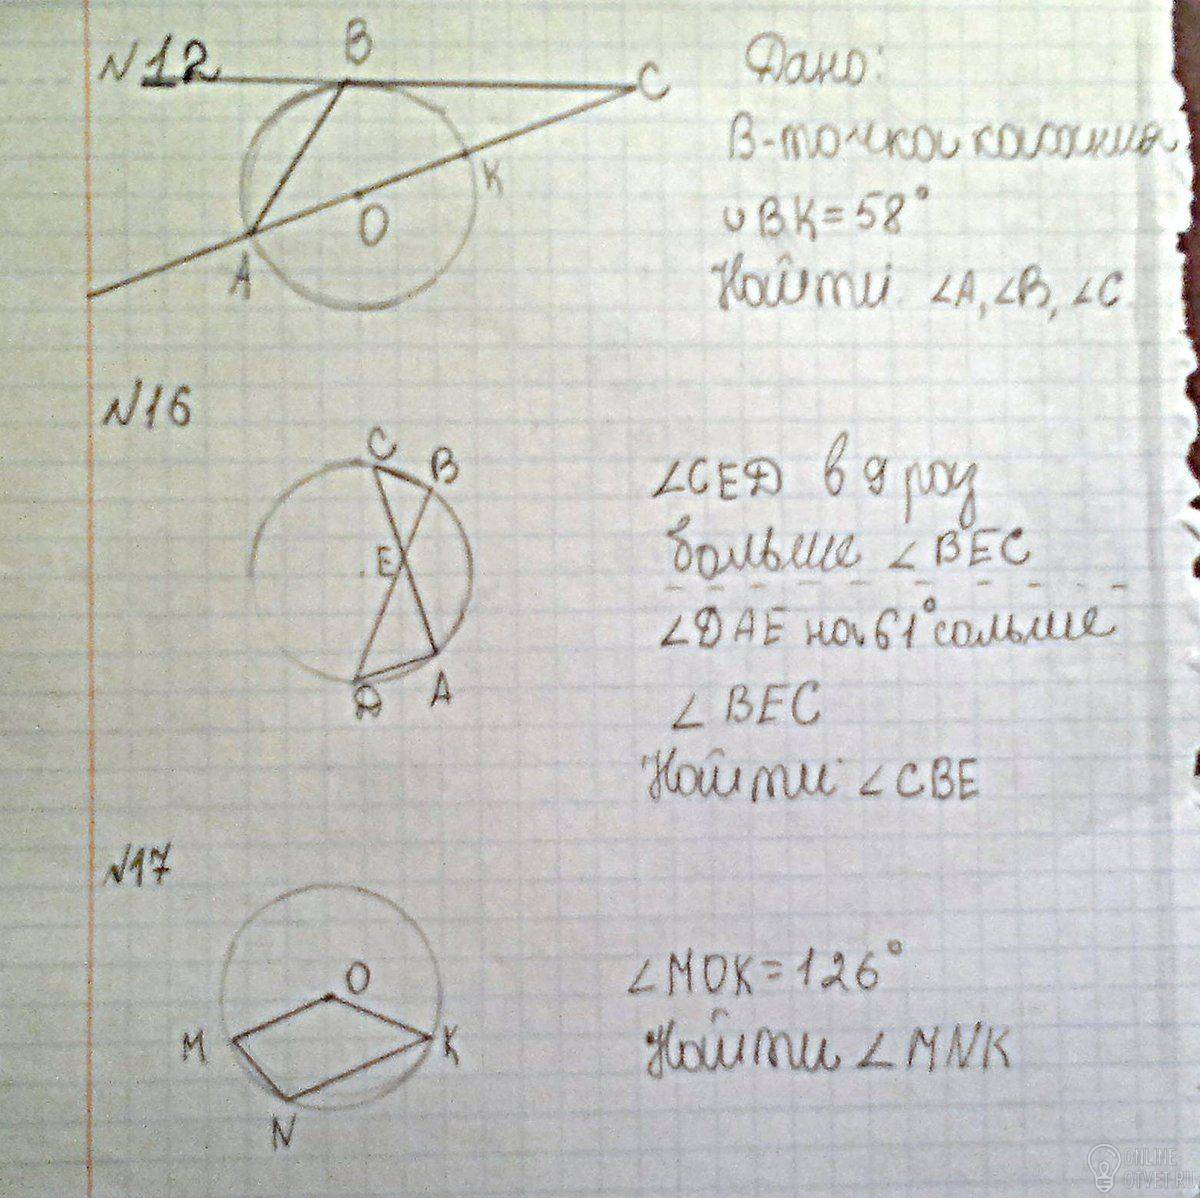 N12
B
C
K
O
A
Дано:
B-точка касания
∪BK=58°
Найти: ∠A, ∠B, ∠C
N16
C
B
E
D
A
∠CED в 9 раз
больше ∠BEC
∠DAE на 61° больше
∠BEC
Найти: ∠CBE
N17
O
M
K
N
∠MOK=126°
Найти ∠MNK
ONLINE
OTVET.RU